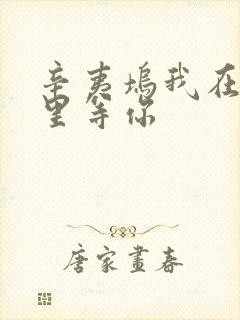 辛夷坞我在
里等你
唐家画春